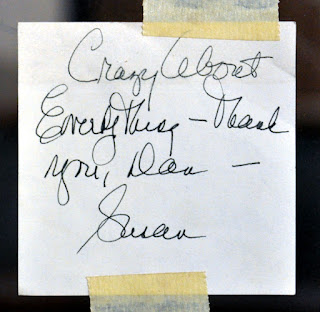 Crazy About
Everything – Thank
you, Dan –
Susan